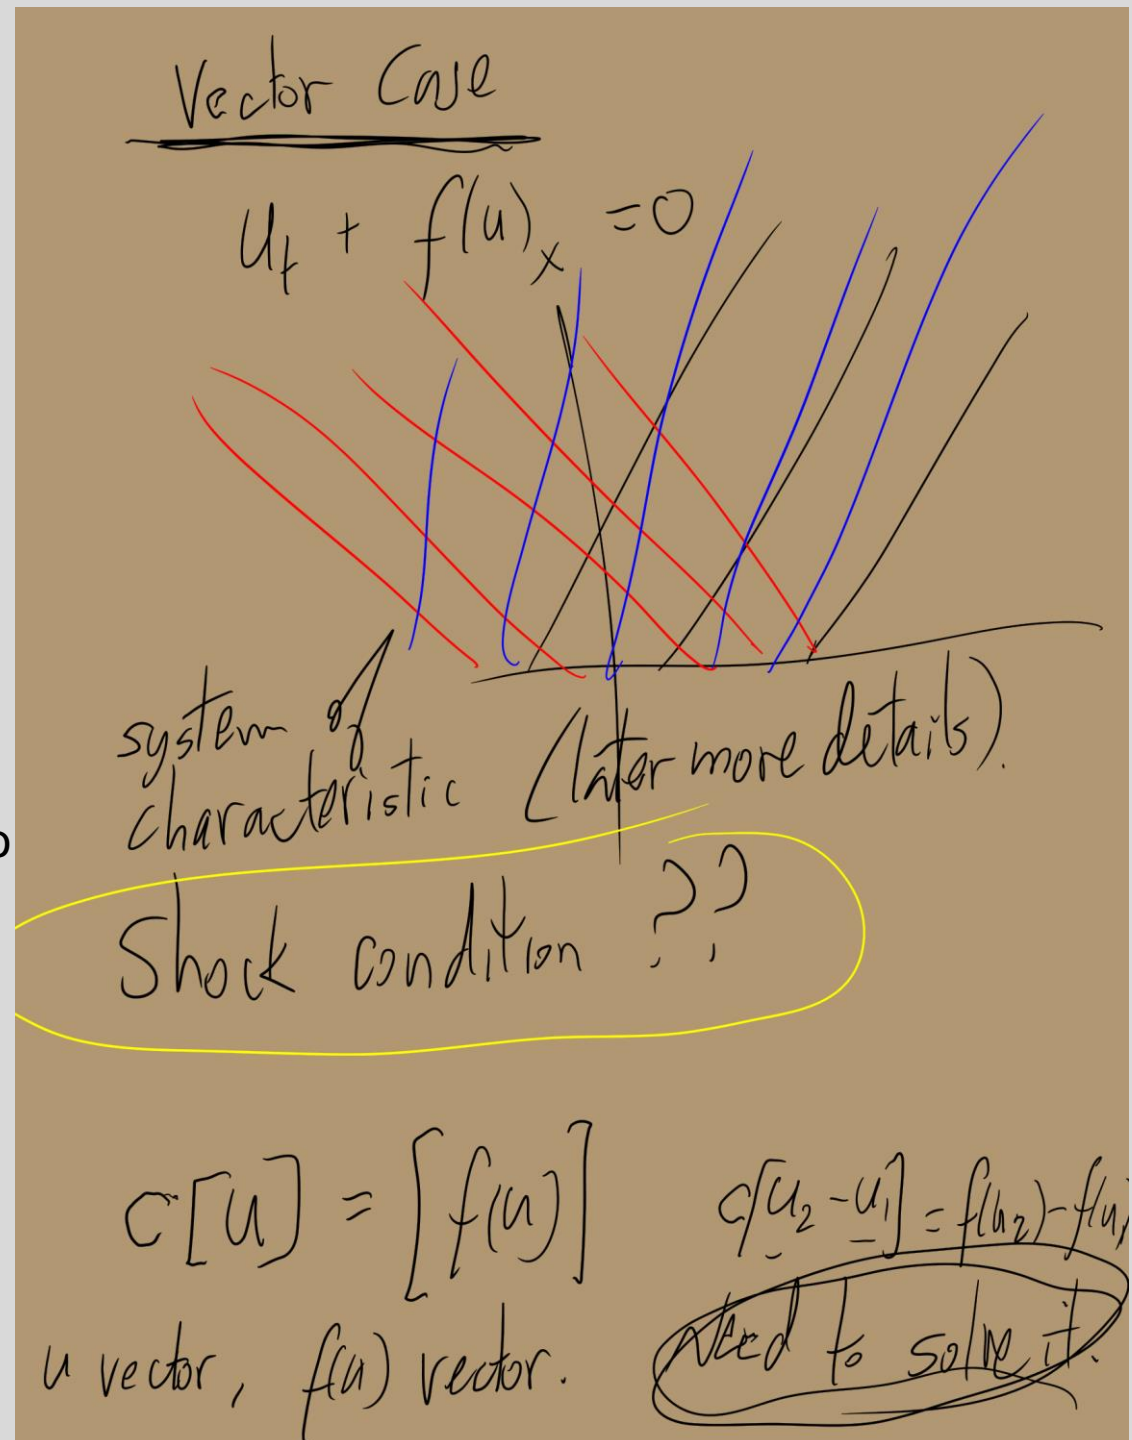 Vector Case
u_t + f(u)_x = 0
system of
characteristic (later more details).
Shock condition ??
c[u] = [f(u)] c[u_2 - u_1] = f(u_2) - f(u_1
u vector, f(u) vector. Need to solve it.